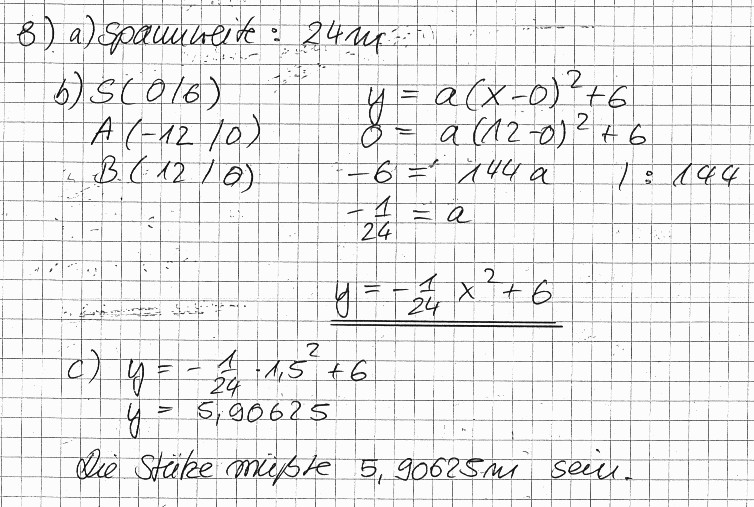 8) a) Spannweite: 24m
b) S(0/6) y = a(x-0)² + 6
A(-12/0) 0 = a(12-0)² + 6
B(12/0) -6 = 144a /: 144
-1/24 = a
y = -1/24 x² + 6
c) y = -1/24 · 1,5² + 6
y = 5,90625
Die Stütze müßte 5,90625m sein.